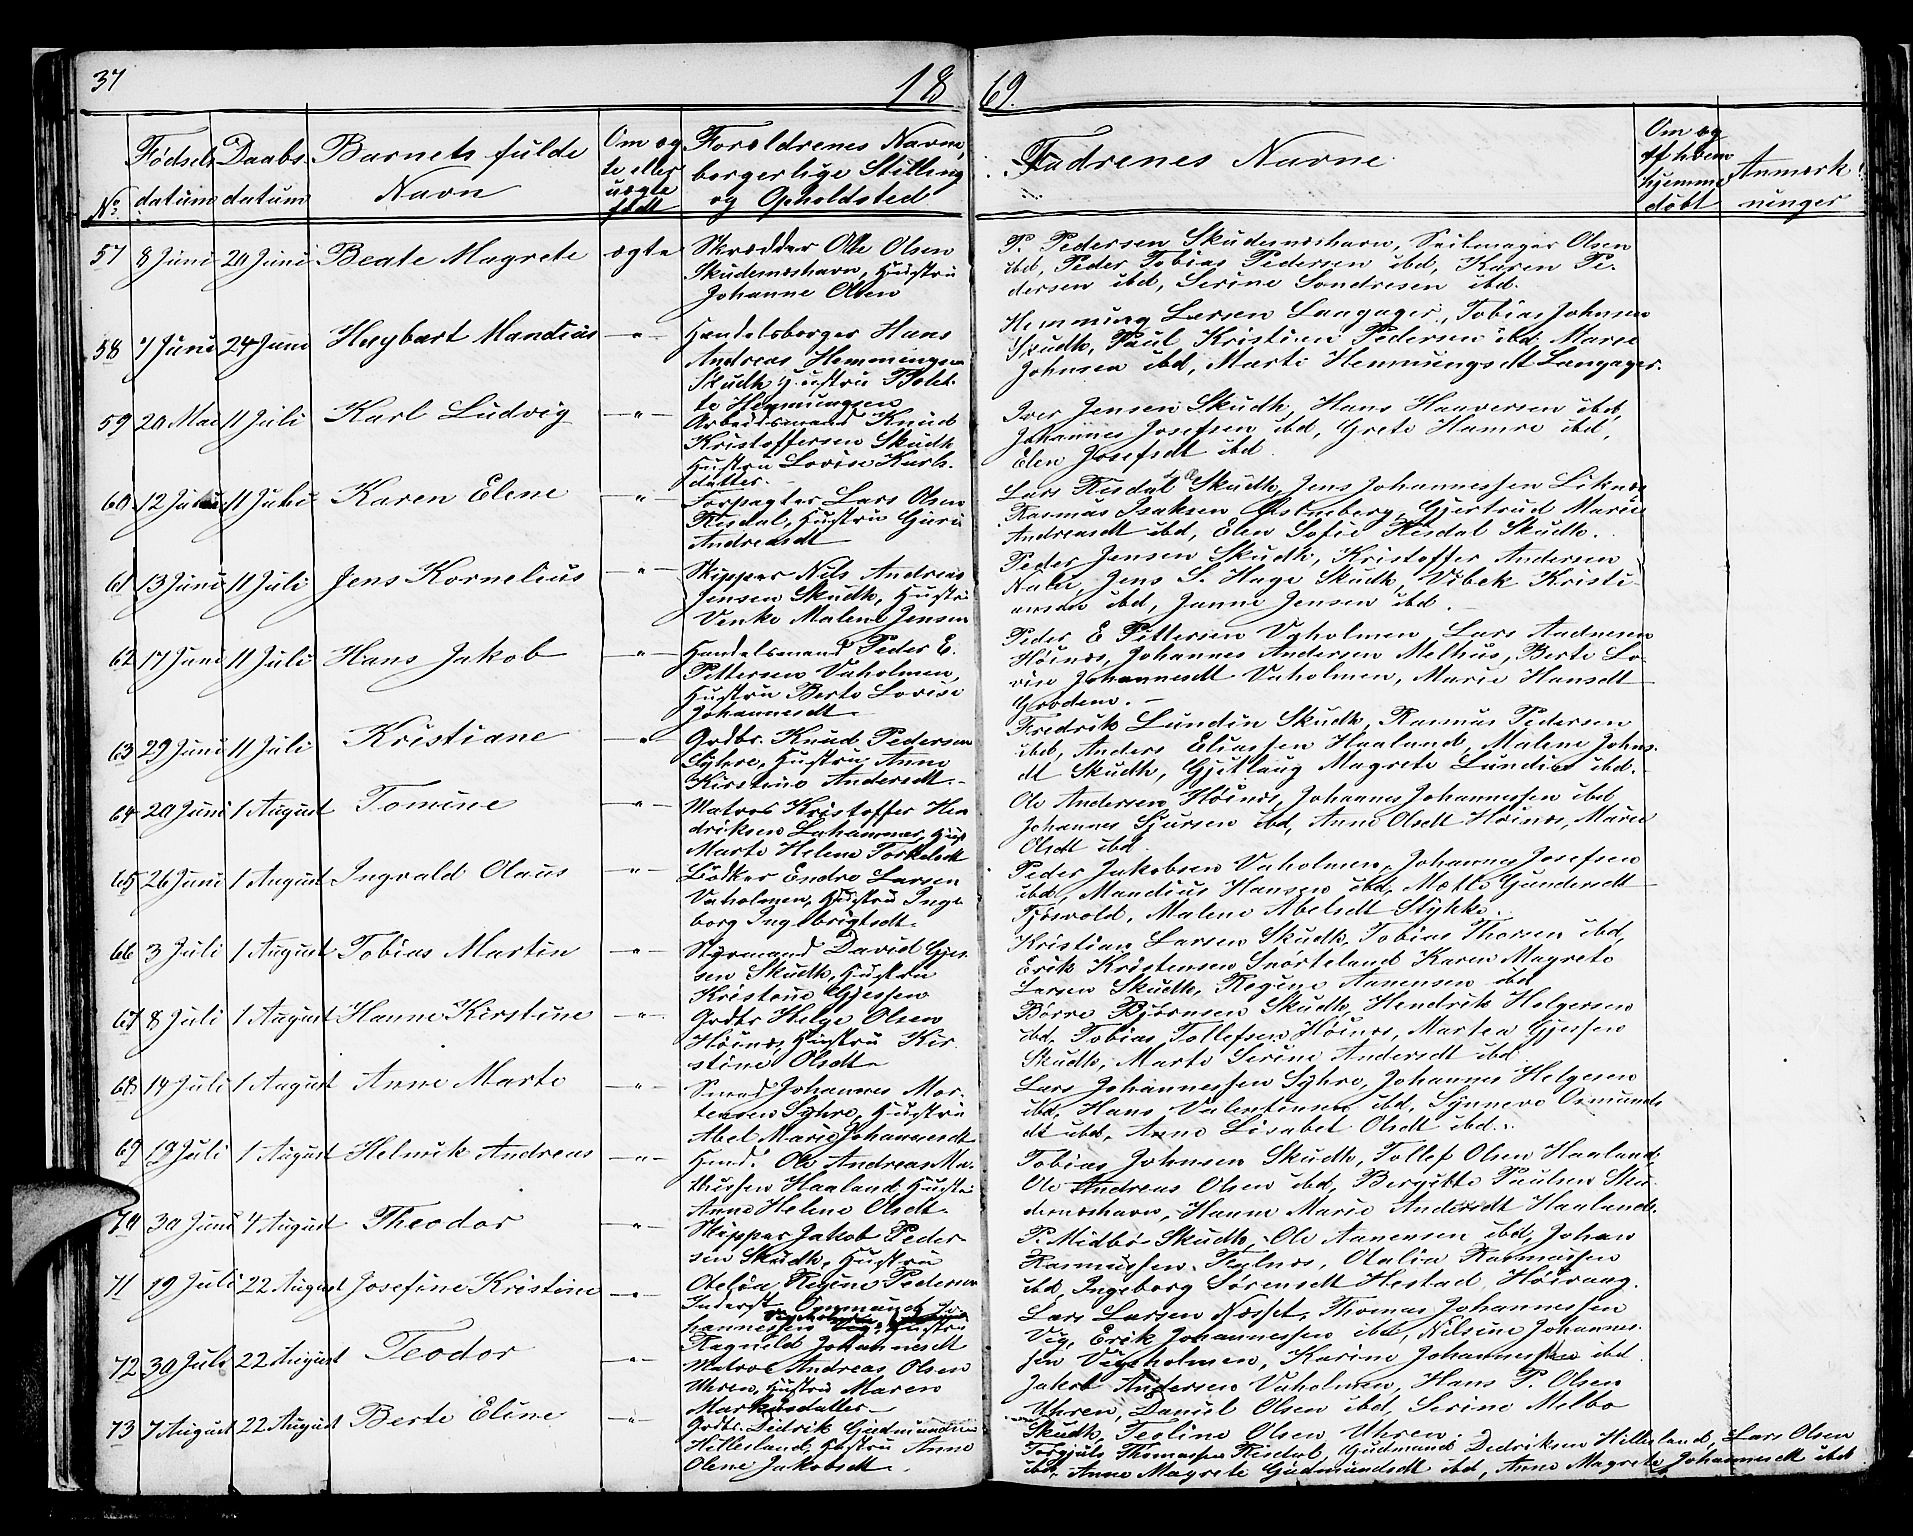 37
18 69.
No
Fødsels
datum
Daabs
datum
Barnets fulde
Navn
Om æg
te eller
uægte
født
Forældrenes Navne,
borgerlige Stilling
og Opholdsted
Fadrenes Navne
Om og
af hvem
hjemme
døbt
Anmærk
ninger
57 8 Juni 20 Juni Beate Magrete ægte
Skrædder Ole Olsen
Skudesneshavn, Hustru
Johanne Olsen
P. Pedersen Skudesneshavn, Seilmager Olsen
ibd, Peder Tobias Pedersen ibd, Karen Pe-
dersen ibd, Serine Sondresen ibd.
58 7 Juni 24 Juni Huybart Mandius -"-
Handelsborger Hans
Andreas Hemmingsen
Skudh, Hustru Bolet-
te Hemmingsen
Hemming Larsen Langager, Tobias Johnsen
Skudh, Paul Kristian Pedersen ibd, Marie
Johnsen ibd, Marte Hemmingsdt Langager.
59 20 Mai 11 Juli Karl Ludvig -"-
Arbeidsmand Knud
Kristoffersen Skudh
Hustru Lovise Karls-
datter.
Iver Jensen Skudh, Hans Haaversen ibd,
Johannes Josefsen ibd, Grete Hamre ibd,
Elen Josefsdt ibd.
60 12 11 Juli Karen Elene -"-
Forpagter Lars Olsen
Risdal, Hustru Guri
Andreasdt
Lars Risdal Skudh, Jens Johannessen Liknes
Rasmus Isaksen Gjertrud Marie
Andreasdt ibd, Elen Sofie Risdal Skudh.
61 13 Juni 11 Juli Jens Kornelius -"-
Skipper Nils Andreas
Jensen Skudh, Hustru
Venke Malene Jensen
Peder Jensen Skudh, Kristoffer Andersen
Jens S. Hage Skudh, Vibek Kristi-
ansen ibd, Janne Jensen ibd.
62 17 Juni 11 Juli Hans Jakob -"-
Handelsmand Peder E.
Pettersen Vaholmen,
Hustru Berte Lovise
Johannesdt
Peder E Pettersen Vaholmen, Lars Aadnesen
Høines, Johannes Andersen Melhus, Berte Lo-
vise Johannesdt Vaholmen, Marie Hansdt
63 29 Juni 11 Juli Kristiane -"-
Grdbr. Knud Pedersen
Syhre, Hustru Anne
Kirstine Andersdt.
Fredrik Lundin Skudh, Rasmus Pedersen
ibd, Anders Eliassen Haaland, Malene Johns-
dt Skudh, Gjetlaug Magrete Lundin ibd.
64 20 Juni 1 August Tomine -"-
Matros Kristoffer Hen
driksen Lahammer, Hust
Marte Helene Torkelsdt
Ole Andersen Høines, Johannes Johannessen ibd
Johannes Sjursen ibd, Anne Olsdt Høines, Marie
Olsdt ibd
65 26 Juni 1 August Ingvald Olaus -"-
Bødker Endre Larsen
Vaholmen, Hustru Inge
borg Ingebrigtsdt.
Peder Jakobsen Vaholmen, Johannes Josefsen
ibd, Mandius Hansen ibd, Mette Gundersdt
Tjøsvold, Malene Abelsdt Stykke.
66 3 Juli 1 August Tobias Martin -"-
Styrmand David Gjes-
sen Skudh, Hustru
Kristine Gjessen
Kristian Larsen Skudh, Tobias Thorsen ibd,
Erik Kristensen Snørteland Karen Magrete
Larsen Skudh, Regine Aanensen ibd
67 8 Juli 1 August Hanne Kirstine -"-
Grdbr Helge Olsen
Høines, Hustru Kir-
stine Olsdt
Børre Bjørnsen Skudh, Hendrik Helgesen
ibd, Tobias Tollefsen Høines, Martea Gjessen
Skudh, Marte Serine Andersdt ibd
68 14 Juli 1 August Anne Marte -"-
Smed Johannes Mor-
tensen Syhre, Hustru
Abel Marie Johannesdt
Lars Johannessen Syhre, Johannes Helgesen
ibd, Hans Valentinsen ibd, Synneve Osmunds
dt ibd, Anne Lisabet Olsdt ibd.
69 19 Juli 1 August Helmik Andreas -"-
Husmd. Ole Andreas Ma-
thissen Haaland Hustru
Anne Helene Olsdt.
Tobias Johnsen Skudh, Tollef Olsen Haaland,
Ole Andreas Olsen ibd, Bergitte Paulsen Sku-
desneshavn, Hanne Marie Andersdt Haaland.
70 30 Juni 4 August Theodor -"-
Skipper Jakob Peder-
sen Skudh, Hustru
Otelia Regine Pedersen
P. Midbø Skudh, Ole Aanensen ibd, Johan
Rasmussen Falnes, Otalia Rasmussen
ibd, Ingeborg Sørensdt Hestad, Høivaag.
71 19 Juli 22 August Josefine Kristine -"-
Inderst Ommund Jo-
hannessen Hustru
Ragnild Johannesdt
Lars Larsen Næsset, Thomas Johannessen
Vig, Erik Johannessen ibd, Nilsine Johannes-
sen Vigsholmen, Karine Johannessen ibd.
72 30 Juli 22 August Teodor -"-
Matros Andreas Olsen
Uhren, Hustru Maren
Markusdatter
Jakob Andersen Vaholmen, Hans P. Olsen
Uhren, Daniel Olsen ibd, Serine Melbo
Skudh, Teoline Olsen Uhren.
73 7 August 22 August Berte Eline -"-
Grdbr. Didrik Gudmundsen
Hillesland, Hustru Anne
Olene Jakobsdt.
Torgjuls Thomassen Risdal, Gudmund Dedriksen Hillesland, Lars Olsen
ibd, Anne Magrete Gudmundsdt ibd, Anne Magrete Johannesdt ibd